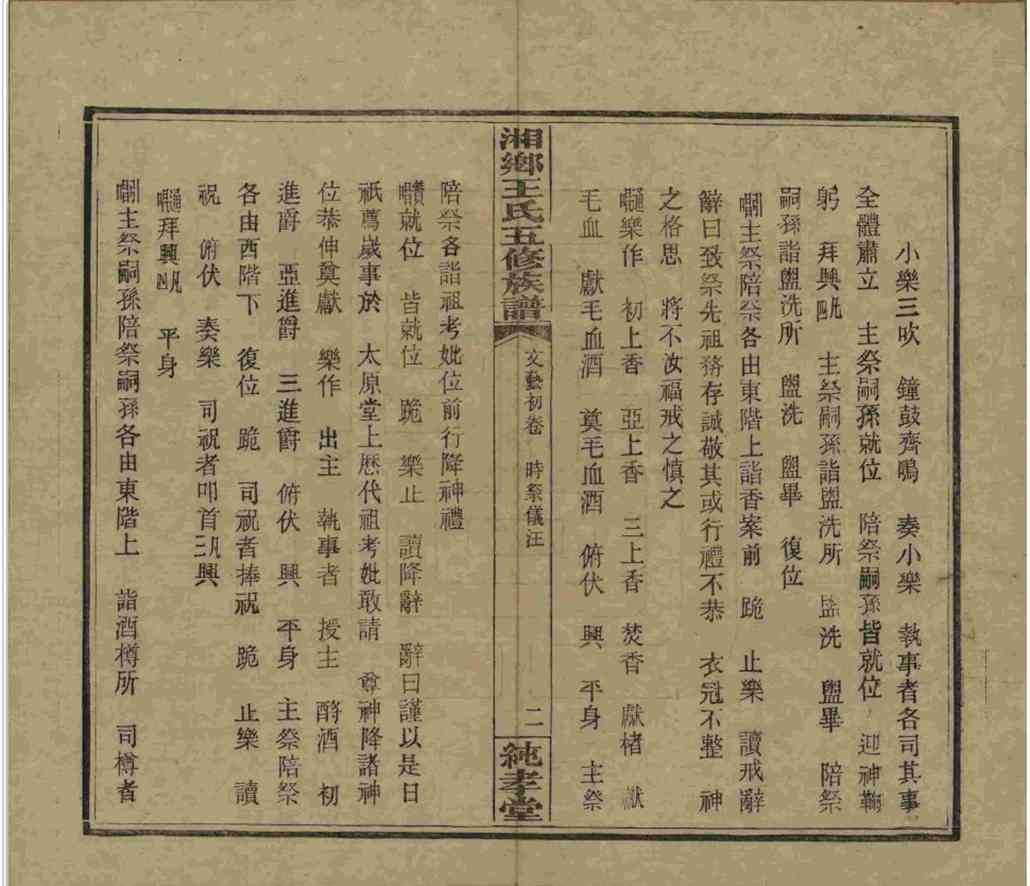 小樂三吹 鐘鼓齊鳴 奏小樂 執事者各司其事
全體肅立 主祭嗣孫就位 陪祭嗣孫皆就位 迎神鞠
躬 拜興凡四 主祭嗣孫詣盥洗所 盥洗 盥畢 陪祭
嗣孫詣盥洗所 盥洗 盥畢 復位
主祭陪祭各由東階上詣香案前 跪 止樂 讀戒辭
辭曰致祭先祖務存誠敬其或行禮不恭 衣冠不整 神
之格思 將不汝福戒之慎之
通唱樂作 初上香 亞上香 三上香 焚香 獻楮 獻
毛血 獻毛血酒 奠毛血酒 俯伏 興 平身 主祭
湘鄉王氏五修族譜
文藝初卷 時祭儀注
二
純孝堂
陪祭各詣祖考妣位前行降神禮
贊唱就位 皆就位 跪 樂止 讀降辭 辭曰謹以是日
祇薦歲事於 太原堂上歷代祖考妣敢請 尊神降諸神
位恭伸奠獻 樂作 出主 執事者 授主 酹酒 初
進爵 亞進爵 三進爵 俯伏 興 平身 主祭陪祭
各由西階下 復位 跪 司祝者捧祝 跪 止樂 讀
祝 俯伏 奏樂 司祝者叩首凡三興
通唱拜興凡四 平身
主祭嗣孫陪祭嗣孫各由東階上 詣酒樽所 司樽者